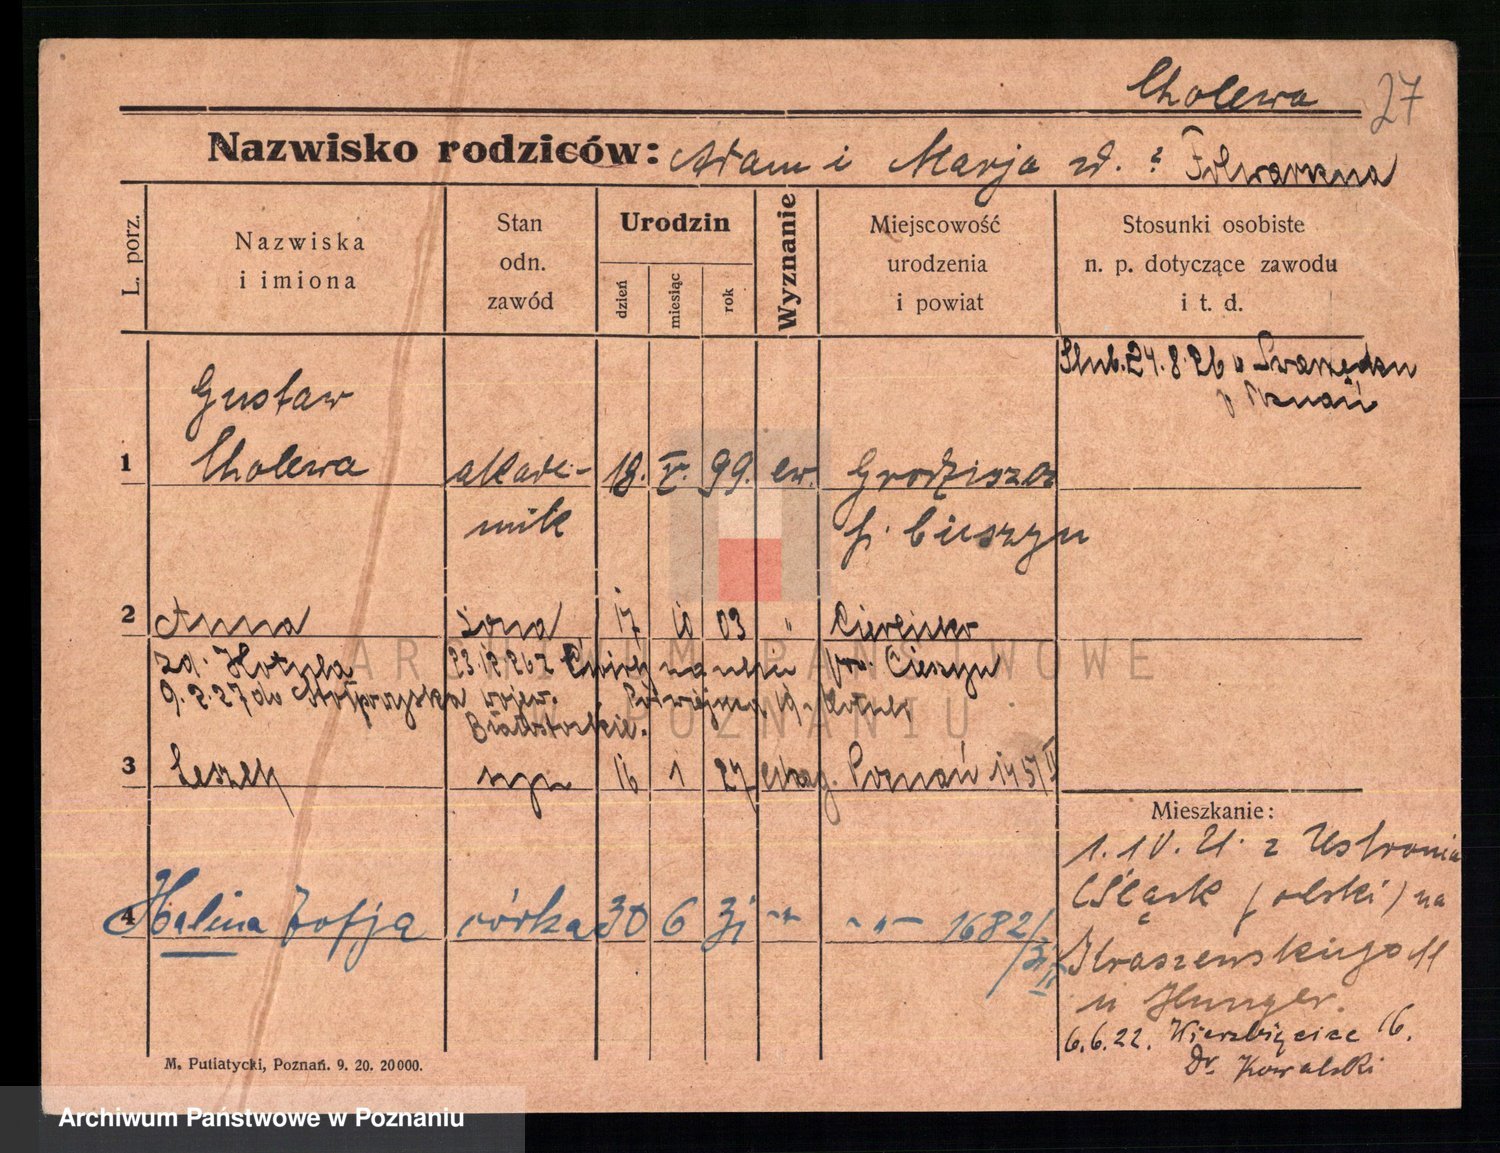 Cholewa
27
Nazwisko rodziców: Adam i Marja zd. ? Folwarczna
L. porz.
Nazwiska
i imiona
Stan
odn.
zawód
Urodzin
dzień
miesiąc
rok
Wyznanie
Miejscowość
urodzenia
i powiat
Stosunki osobiste
n. p. dotyczące zawodu
i t. d.
Ślub. 24.8.26 w Swarzędzu
p Poznań
Gustaw
1 Cholewa akade- 18. V. 99. ew. Grodziszcz
mik p. Cieszyn
2 Anna żona 17 10 03 "
zd. Hotula 23.12.26 z pow. Cieszyn
9.2.27 do wojew.
Białostockie.
3 Leszek syn 16 1 27 ewag. Poznań 145/II
4 Halina Zofja córka 30 6 31 -"- -"- 1682/
/31 II
Mieszkanie:
1.IV.21. z Ustronia
(Śląsk polski) na
Kraszewskiego 11
u Hunger.
6.6.22. Wierzbięcice 16.
Dr. Kowalski
M. Putiatycki, Poznań. 9. 20. 20000.
ARCHIWUM PAŃSTWOWE
W POZNANIU
Archiwum Państwowe w Poznaniu